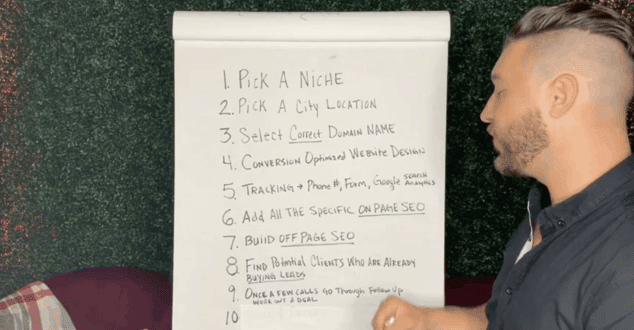 1. Pick A Niche
2. Pick A City Location
3. Select Correct Domain Name
4. Conversion Optimized Website Design
5. Tracking → Phone #, Form, Google Search Analytics
6. Add All The Specific On Page SEO
7. Build Off Page SEO
8. Find Potential Clients Who Are Already
Buying Leads
9. Once A Few Calls Go Through Follow Up
Work Out A Deal
10